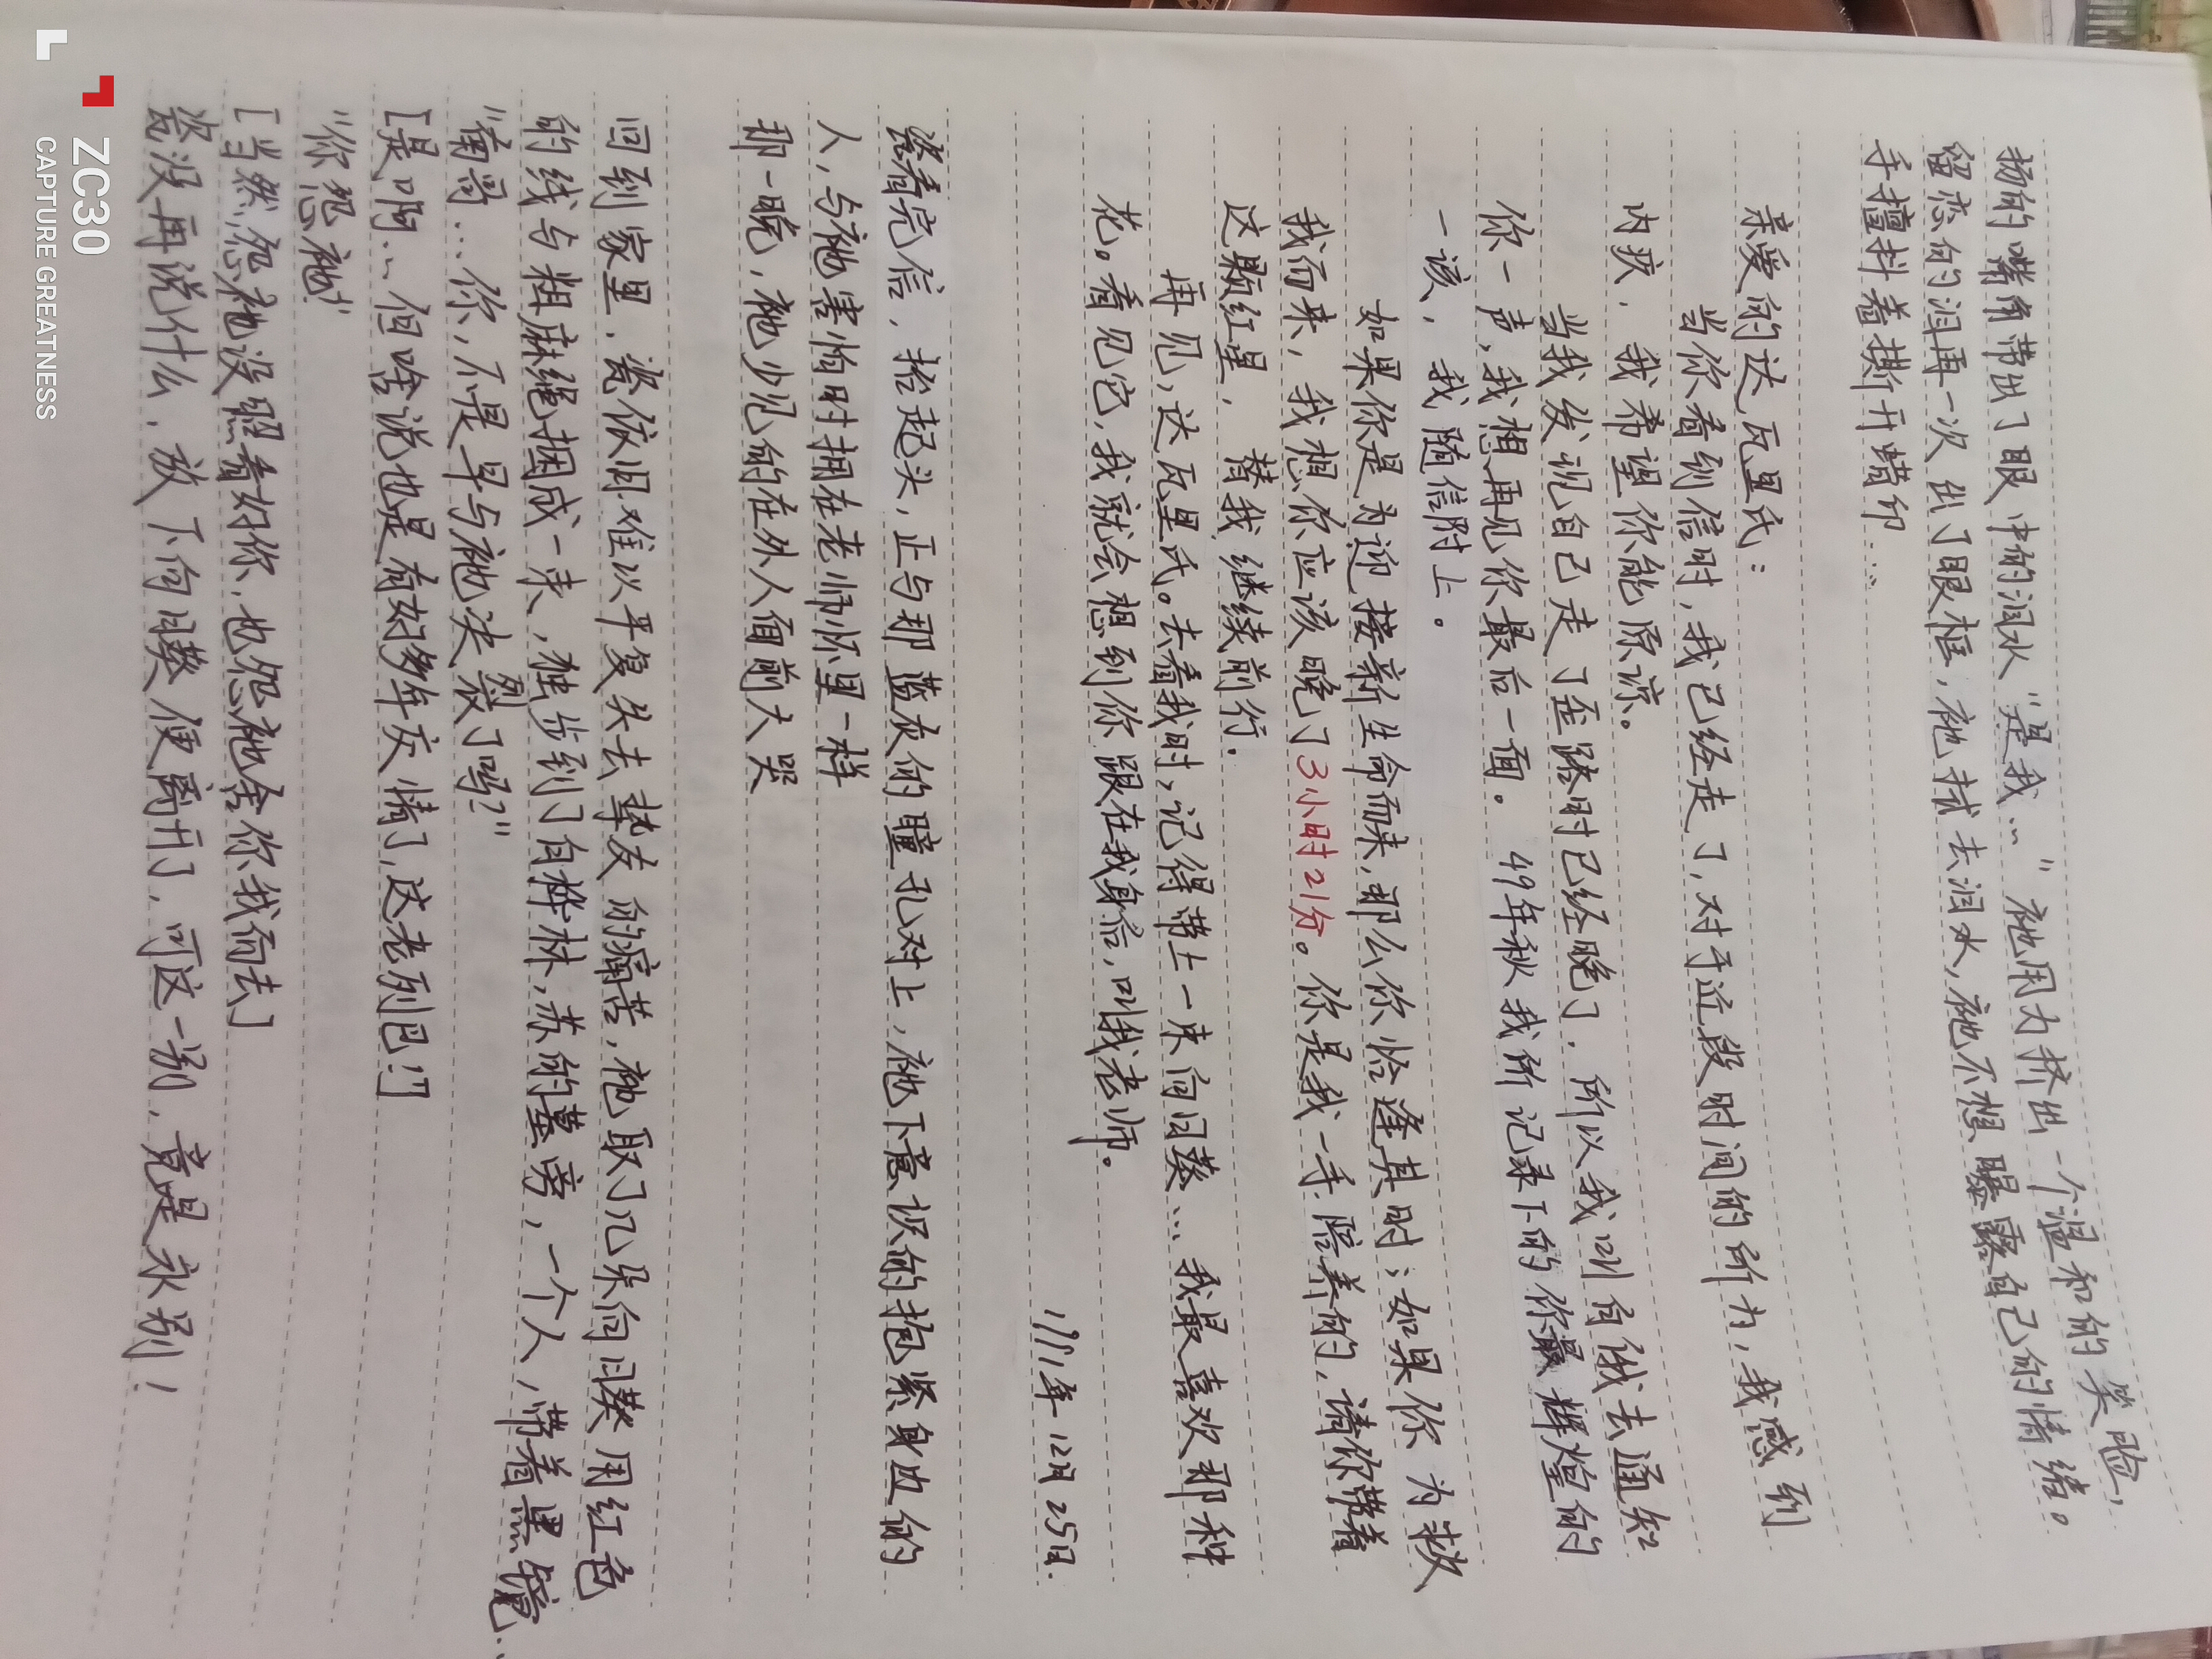 扬的嘴角带出了眼中的泪水“是我…” 祂用力挤出一个温和的笑脸，
留恋的泪再一次出了眼框，祂拭去泪水，祂不想曝露自己的情绪。
手擅抖着撕开蜡印…
亲爱的达瓦里氏：
当你看到信时，我已经走了，对于近段时间的所为，我感到
内疚，我希望你能原谅。
当我发现自己走了歪路时已经晚了，所以我叫向俄去通知
你一声，我想再见你最后一面。49年秋我所记录下的你最辉煌的
一该，我随信附上。
如果你是为迎接新生命而来，那么你恰逢其时；如果你为救
我而来，我想你应该晚了3小时21分。你是我一手陪养的，请你带着
这颗红星，替我继续前行.
再见，达瓦里氏。去看我时，记得带上一束向日葵…我最喜欢那种
花。看见它，我就会想到你跟在我身后，叫我老师。
1991年12月25日.
瓷看完信，抬起头，正与那蓝灰的瞳孔对上，祂下意识的抱紧身边的
人，与祂害怕时拥在老师怀里一样
那一晚，祂少见的在外人面前大哭
回到家里，瓷依旧难以平复失去挚友的痛苦，祂取了几朵向日葵用红色
的线与粗麻绳捆成一束，独步到了白桦林，苏的墓旁，一个人，带着黑伞…
“南尚…你，不是早与祂决裂了吗?”
[是啊…但啥说也是有好多年交情了，这老列巴!]
“你怨祂?”
[当然，怨祂没照看好你，也怨祂舍你我而去]
瓷没再说什么，放下向日葵便离开了，可这一别，竟是永别！
ZC30
CAPTURE GREATNESS